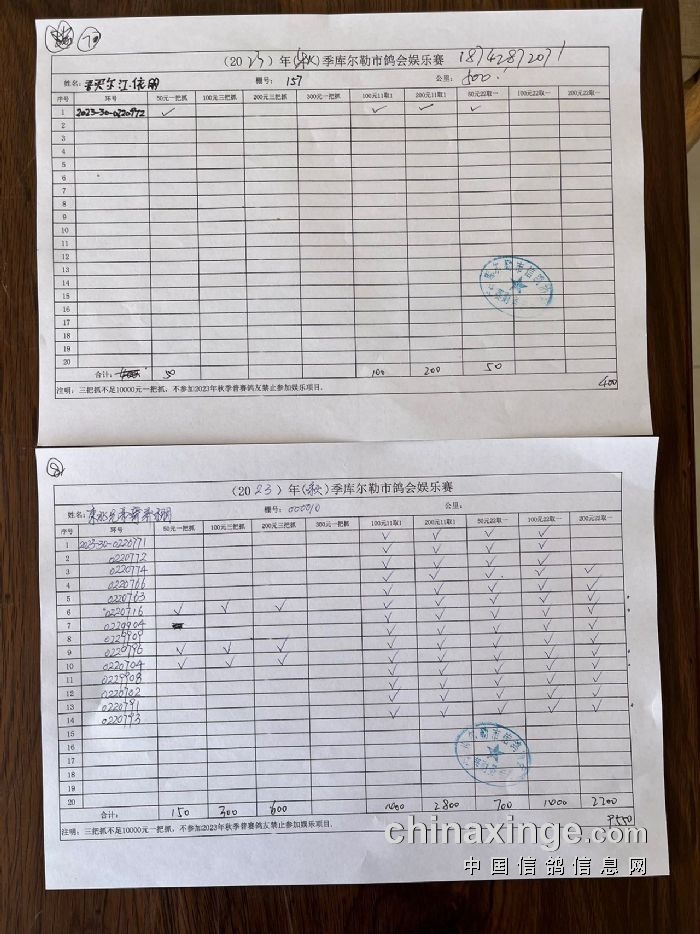 (2023)年(秋)季库尔勒市鸽会娱乐赛 18742872071
姓名: 棚号: 157 公里: 800
序号 环号 50元一把抓 100元三把抓 200元三把抓 300元一把抓 100元11取1 200元11取1 50元22取一 100元22取一 200元22取一
1 2023-30-0220992 ✓ ✓ ✓ ✓
2
3
4
5
6
7
8
9
10
11
12
13
14
15
16
17
18
19
20
合计: 50 100 200 50
400
注明: 三把抓不足10000元一把抓, 不参加2023年秋季普赛鸽友禁止参加娱乐项目.
(2023)年(秋)季库尔勒市鸽会娱乐赛
姓名: 棚号: 000010 公里:
序号 环号 50元一把抓 100元三把抓 200元三把抓 300元一把抓 100元11取1 200元11取1 50元22取一 100元22取一 200元22取一
1 2023-30-0220771 ✓ ✓ ✓ ✓
2 0220772 ✓ ✓ ✓ ✓
3 0220774 ✓ ✓ ✓ ✓ ✓
4 0220766 ✓ ✓ ✓ ✓ ✓
5 0220763 ✓ ✓ ✓ ✓ ✓
6 0220716 ✓ ✓ ✓ ✓ ✓ ✓ ✓ ✓
7 0229904 ✓ ✓ ✓ ✓ ✓
8 0229909 ✓ ✓ ✓ ✓ ✓
9 0220796 ✓ ✓ ✓ ✓ ✓ ✓ ✓ ✓
10 0220704 ✓ ✓ ✓ ✓ ✓ ✓ ✓ ✓
11 0229908 ✓ ✓ ✓ ✓ ✓
12 0220702 ✓ ✓ ✓ ✓ ✓
13 0220791 ✓ ✓ ✓ ✓ ✓
14 0220793 ✓ ✓ ✓ ✓ ✓
15
16
17
18
19
20
合计: 150 300 600 1400 2800 700 1400 2200
9550
注明: 三把抓不足10000元一把抓, 不参加2023年秋季普赛鸽友禁止参加娱乐项目.
chinaxinge.com
中国信鸽信息网